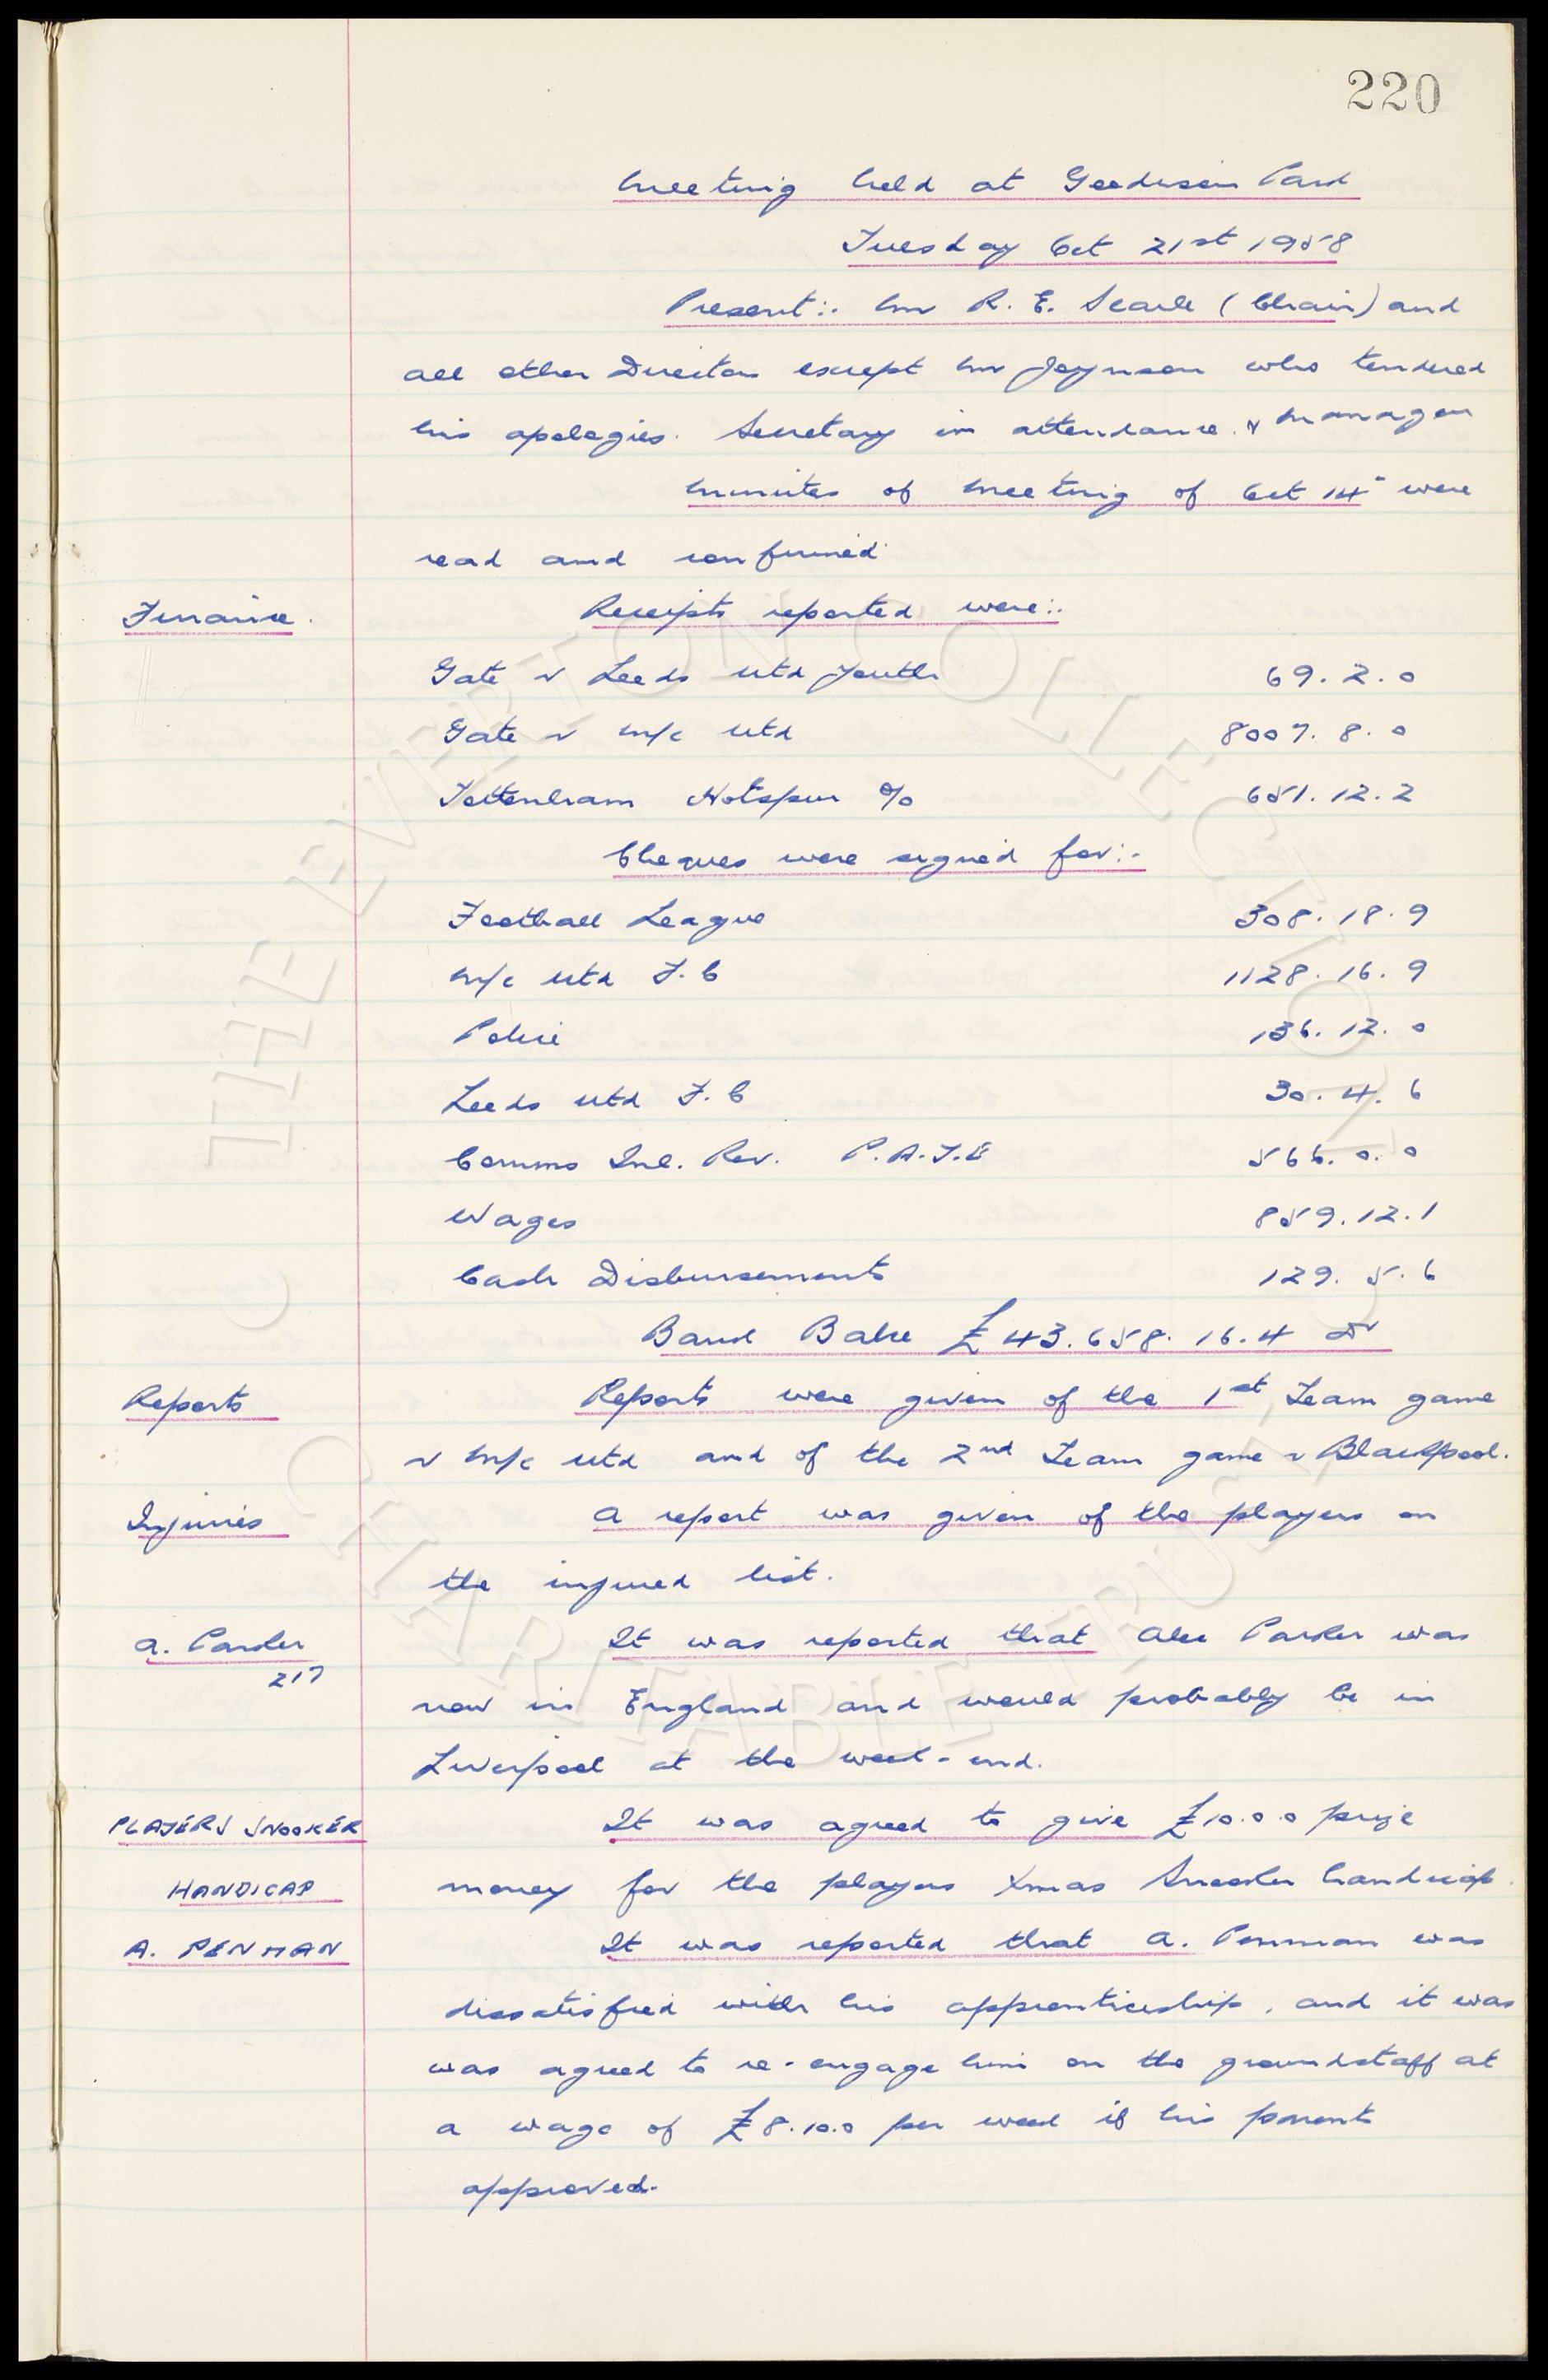 220
Meeting held at Goodison Park
Tuesday Oct 21st 1958
Present:. Mr R. E. Searle (Chair) and
all other Directors except Mr Joynson who tendered
his apologies. Secretary in attendance. & Manager
Minutes of Meeting of Oct 14" were
read and confirmed
Finance. Receipts reported were:.
Gate v Leeds Utd Youth 69. 2. 0
Gate v M/c Utd 8007. 8. 0
Tottenham Hotspur % 651. 12. 2
Cheques were signed for:-
Football League 308. 18. 9
M/c Utd F. C 1128. 16. 9
Police 136. 12. 0
Leeds Utd F. C 30. 4. 6
Comms Inl. Rev. P.A.Y.E 566. 0. 0
Wages 859. 12. 1
Cash Disbursements 129. 5. 6
Bank Balce £43.658. 16. 4 Dr
Reports Reports were given of the 1st Team game
v M/c Utd and of the 2nd Team game v Blackpool.
Injuries A report was given of the players on
the injured list.
A. Parker It was reported that Alec Parker was
217
now in England and would probably be in
Liverpool at the week-end.
PLAYERS SNOOKER It was agreed to give £10.0.0 prize
HANDICAP money for the players Xmas Snooker handicap.
A. PENMAN It was reported that A. Penman was
dissatisfied with his apprenticeship, and it was
was agreed to re-engage him on the groundstaff at
a wage of £8.10.0 per week if his parents
approved.
THE EVERTON COLLECTION
CHARITABLE TRUST